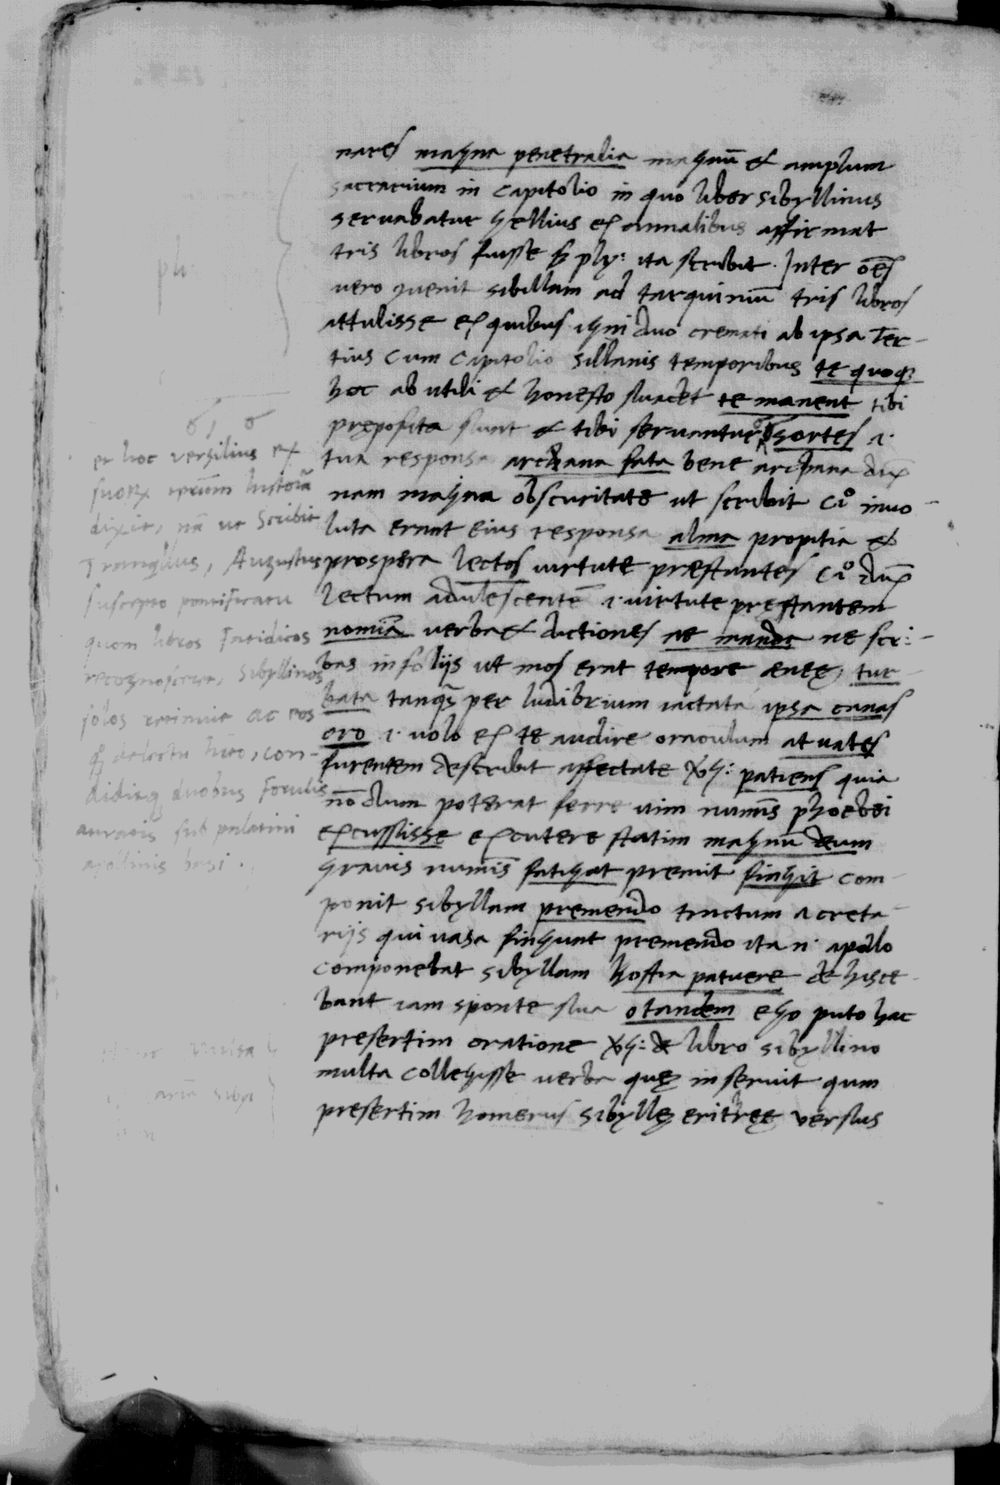 nares magna penetralia magnū & amplum
sacrarium in capitolio in quo liber sibyllinus
servabatur gellius ex annalibus affirmat
tris libros fuisse ply: ita scribit. Inter oēs
vero gvenit sibillam ad tarquiniū tris libros
attulisse ex quibus igni duo cremati ab ipsa Ter-
tius cum capitolio sillanis temporibus te quoq;
hoc ab utili & honesto suadet te manent tibi
prȩposita sunt & tibi servantur sortes .i.
tua responsa archana fata bene archana dix
nam magna obscuritate ut scribit Cio invo-
luta erant eius responsa alma propitia &
prospera lectos virtute præstantes Cio
lectum adulescentē .i. virtute prȩstantem
nomīa verba & dictiones ne manda ne scri-
bas in folijs ut mos erat tempore æneȩ, tur-
bata tanq̄ per ludibrium iactata ipsa canas
oro .i. volo ex te audire oraculum at vates
furentem describit affectate patiens quia
nōdum poterat ferre vim numīs phoebi
excussisse excutere statim magnū deum
gravis numīs fatigat premit fingit com-
ponit sibyllam premendo tractum a creta-
rijs qui vasa fingunt premendo ita n. apollo
componebat sibyllam hostia patuere dehisce-
bant iam sponte sua o tandem ego puto hac
presertim oratione de libro sibyllino
multa collegisse verba quȩ inservit qum
presertim homerus sibyllȩ erithrȩȩ versus
ply:
et hoc vergilius ex
suorȝ historiā
dixit, nā ut scribit
Tranqllus, Augustus
suscepto pontificatu
quom libros Fatidicos
recognosceret, sibyllinos
solos retinuit ac eos
q̨ delectu hīto, con-
diditq̨ duobus forulis
auratis sub palatini
apollinis basi.